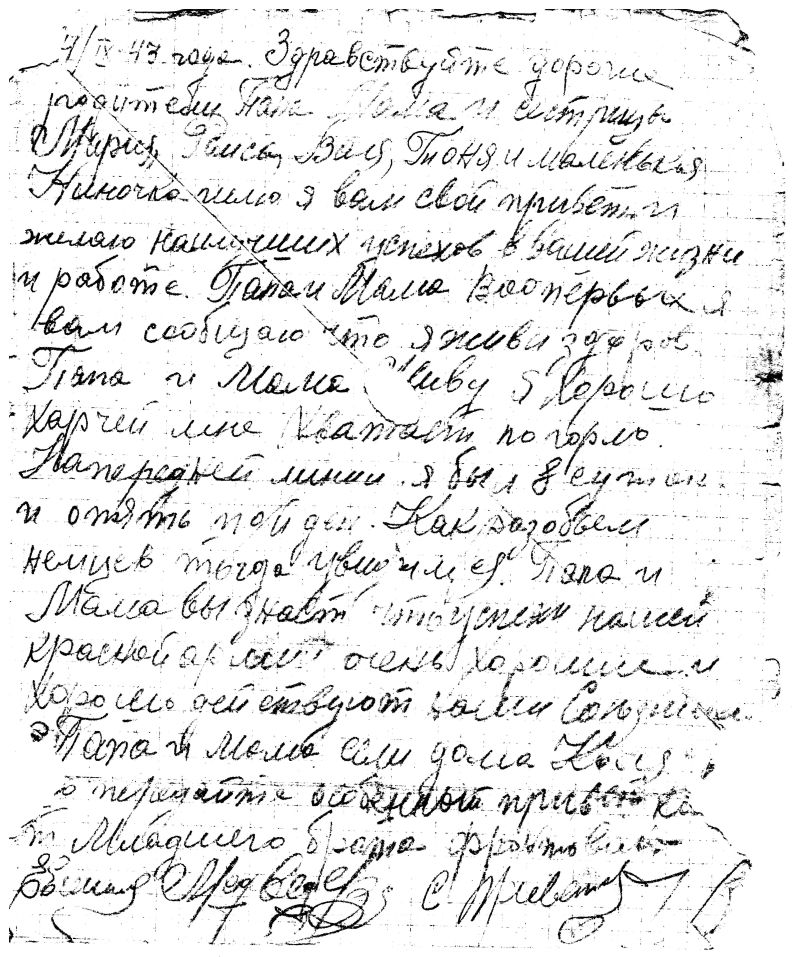 7/IX-43 года. Здравствуйте дорогие
родители Папа Мама и сестрицы
Мария, Раиса, Валя, Тоня и маленькая
Ниночка шлю я вам свой привет и
желаю наилучших успехов в вашей жизни
и работе. Папа и Мама Воопервых я
вам сообщаю что я жив и здоров
Папа и Мама Живу я хорошо
харчей мне хватает по горло.
На передней линии я был 8 суток
и опять пойдем. Как разобьем
немцев тогда увидимся. Папа и
Мама вы знаете что успехи нашей
красной армии очень хорошие и
хорошо действуют наши Союзники
Папа и Мама если дома Коля
то передайте особенный привет ка
от Младшего брата фронтовика
Медведев С Приветом